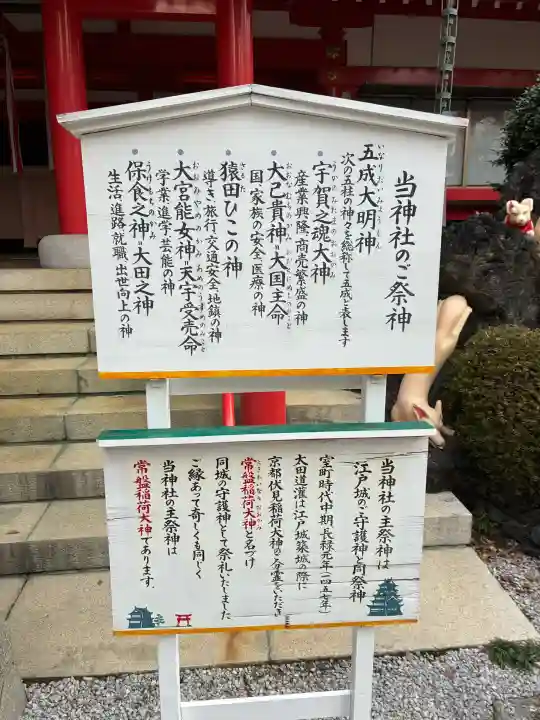 当神社のご祭神
五成大明神
いなりおおみょうじん
次の五柱の神々を総称して五成と表します
・宇賀之魂大神
産業興隆、商売繁盛の神
・大己貴神=大国主命
国、家族の安全、医療の神
・猿田ひこの神
さるた
導き、旅行、交通安全、地鎮の神
・大宮能女神=天宇受売命
おおみやめのかみ あめのうずめのみこと
学業、進学、芸能の神
・保食之神=大田之神
うけもちのかみ
生活、進路、就職、出世向上の神
当神社の主祭神は
江戸城のご守護神と同祭神
室町時代中期、長禄元年(一四五七年)
太田道灌は江戸城築城の際に
京都伏見稲荷大神のご分霊をいただき
常盤稲荷大神と名づけ
ときわいなりおおかみ
同城の守護神として祭礼いたしました
ご縁あって奇しくも同じく
当神社の主祭神は
常盤稲荷大神であります。